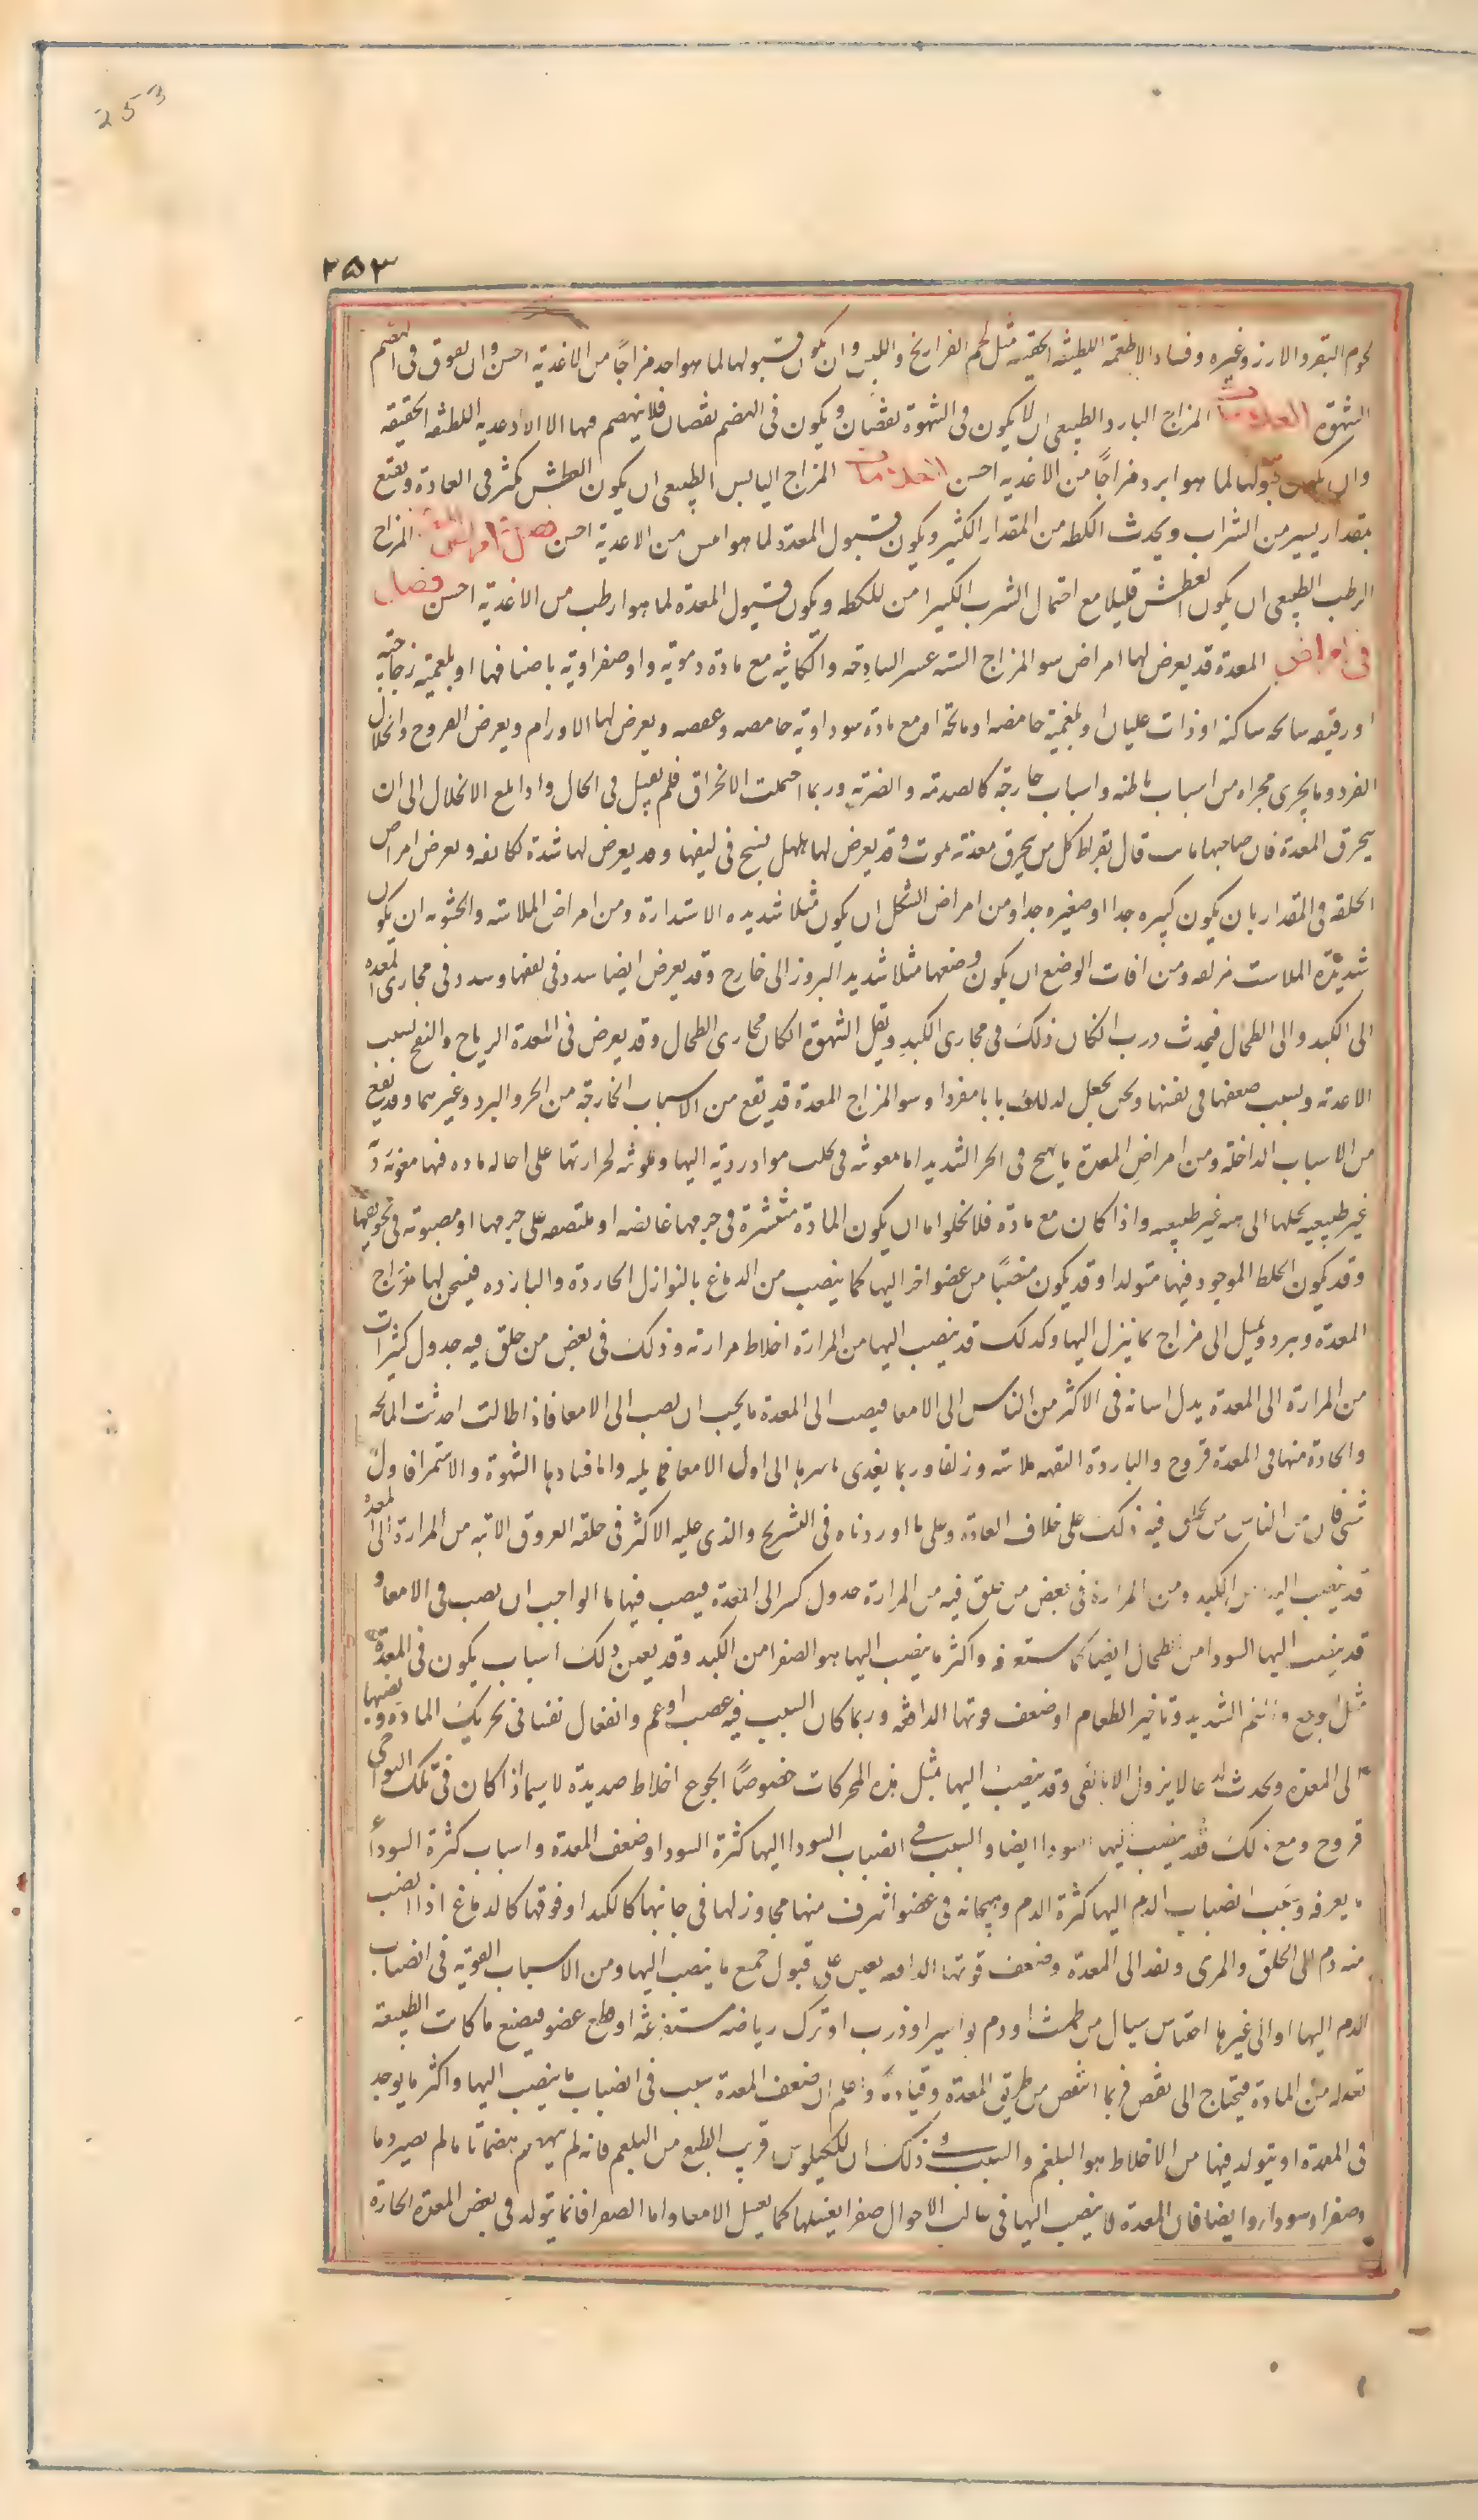 253
٢٥٣
لحوم البقر والارز وغيره وفساد الاطعمة اللطيفه الخفيفه مثل لحم الفراريخ واللبن وان يكون قبولها لما هو احد مزاجاً من الاغذية احسن وان يفوق في الهضم
الشهوة العلامات المزاج البارد الطبيعى ان لا يكون فى الشهوة نقصان ويكون فى الهضم نقصان فلا ينهضم فيها الا الاغدية اللطيفه الخفيفه
وان يكون قبولها لما هو ابرد مزاجاً من الاغذيه احسن العلامات المزاج اليابس الطبيعى ان يكون العطش يكثر فى العادة ويقنع
بمقدار يسير من الشراب ويحدث الكظه من المقدار الكثير ويكون قبول المعدة لما هو ايبس من الاغدية احسن المزاج
الرطب الطبيعى ان يكون العطش قليلا مع احتمال الشرب الكثير امن للكظه ويكون قبول المعدة لما هو ارطب من الاغذية احسن فصل
فى امراض المعدة قد يعرض لها امراض سو المزاج السته عسر السادجه والكاينه مع مادة دمويه او صفراويه باصنافها او بلغميه زجاجيه
او رقيقه سانحه ساكنه او ذات غليان او بلغمية حامضه او مالحه او مع مادة سوداوية حامصه وعفصه ويعرض لها الاورام ويعرض القروح وانحلال
الفرد وما يجرى مجراه من اسباب باطنه واسباب خارجه كالصدمه والضربه وربما احتملت الانخراق فلم يقتل فى الحال واذا بلغ الانحلال الى ان
يخرق المعدة فان صاحبها مات قال بقراط كل من يخرق معدته يموت وقد يعرض لها تهلهل نسج فى ليفها وقد يعرض لها شدة تكاثف ويعرض امراض
الخلقه فى المقدار بان يكون كبيره جدا او صغيره جدا ومن امراض الشكل ان يكون مثلا شديده الاستدارة ومن امراض الملاسة والخشونه ان يكون
شديدة الملاست مزلقه ومن افات الوضع ان يكون وضعها مثلا شديد البروز الى خارج وقد يعرض ايضا سدد فى ليفها وسدد فى مجارى المعده
الى الكبد والى الطحال فيحدث درب ان كان ذلك فى مجارى الكبد ويقل الشهوة ان كان مجارى الطحال وقد يعرض فى المعدة الرياح والنفخ بسبب
الاغدنه وبسبب ضعفها فى نفسها ونحن نجعل لذلك بابا مفردا وسو المزاج المعدة قد يقع من الاسباب الخارجة من الحر والبرد وغيرهما وقد يقع
من الاسباب الداخله ومن امراض المعدة ما يهيج فى الحر الشديد اما معونته فى تحلب مواد رديه اليها ومعونته لحرارتها على احاله ماده فيها معونة
غير طبيعيه يحلها الى هيئة غير طبيعيه واذا كان مع مادة فلا يخلوا ما ان يكون المادة منتشرة فى جرمها غايصه او ملتصقه على جرمها او مصبوبة فى تجويفها
وقد يكون الخلط الموجود فيها متولدا وقد يكون منصباً من عضو اخر اليها كما ينصب من الدماغ بالنوازل الحاردة والبارده فيسخن لها مزاج
المعدة ويبرد ويميل الى مزاج ما ينزل اليها وكدلك قد ينصب اليها من المرارة اخلاط مرارية وذلك فى بعض من خلق فيه جدول كثيرات
من المرارة الى المعدة بدل اتيانه فى الاكثر من الناس الى الامعا فيصب الى المعدة ما يجب ان يصب الى الامعا فاذا طالت احدثت المالحه
والحادة منها فى المعدة قروح والباردة التفهه ملاسة وزلقا وربما يغدى تاثيرها الى اول الامعا فما يليه واما فسادها الشهوة والاستمرا فاول
شى فان من الناس من يخلق فيه ذلك على خلاف العادة وعلى ما اوردناه فى التشريح والذى عليه الاكثر فى خلقه العروق الاتيه من المرارة الى المعدة
قد ينصب اليها من الكبد ومن المرارة فى بعض من خلق فيه من المرارة جدول كبير الى المعدة فيصب فيها ما الواجب ان يصب فى الامعا و
قد ينصب اليها السودا من الطحال ايضا كما ستعرفه واكثر ما ينصب اليها هو الصفرا من الكبد وقد يعين ذلك اسباب يكون فى المعدة
مثل الوجع والغم الشديد وتاخير الطعام او ضعف قوتها الدافعه وربما كان السبب فيه غضب او غم وانفعال نفسانى يحريك المادة ويصبها
الى المعدة ويحدث لدعا لا يزول الا بالقى وقد ينصب اليها مثل هذه المحركات خصوصاً الجوع اخلاط صديدة لا سيما اذا كان فى تلك النواحى
قروح ومع ذلك فقد ينصب اليها السودا ايضا والسبب فى انصباب السودا اليها كثرة السودا وضعف المعدة واسباب كثرة السودا
ما يعرفه وسبب انصباب الدم اليها كثرة الدم وهيجانه فى عضو اشرف منها مجاوز لها فى جانبها كالكبد او فوقها كالدماغ اذا انصب
منه دم الى الحلق والمرى ونفد الى المعدة وضعف قوتها الدافعه يعين على قبول جميع ما ينصب اليها ومن الاسباب القوية فى انصباب
الدم اليها او الى غيرها احتباس سيال من طمث او دم بواسير او ذرب او ترك رياضه مستفرغه او قطع عضو فيضيع ما كانت الطبيعه
تعدله من المادة فيحتاج الى نقص فربما انتقص من طريق المعدة وقيادة واعلم ان ضعف المعدة سبب فى انصباب ما ينصب اليها واكثر ما يوجد
فى المعدة او يتولد فيها من الاخلاط هو البلغم والسبب فى ذلك ان للكيلوس قريب الطبع من البلغم فانه لم ينهضم هضما تاما لم يصير دما
وصفرا وسودا وايضا فان المعدة لا ينصب اليها فى غالب الاحوال صفرا يغسلها كما يغسل الامعا واما الصفرا فانما يتولد فى بعض المعدة الحارة